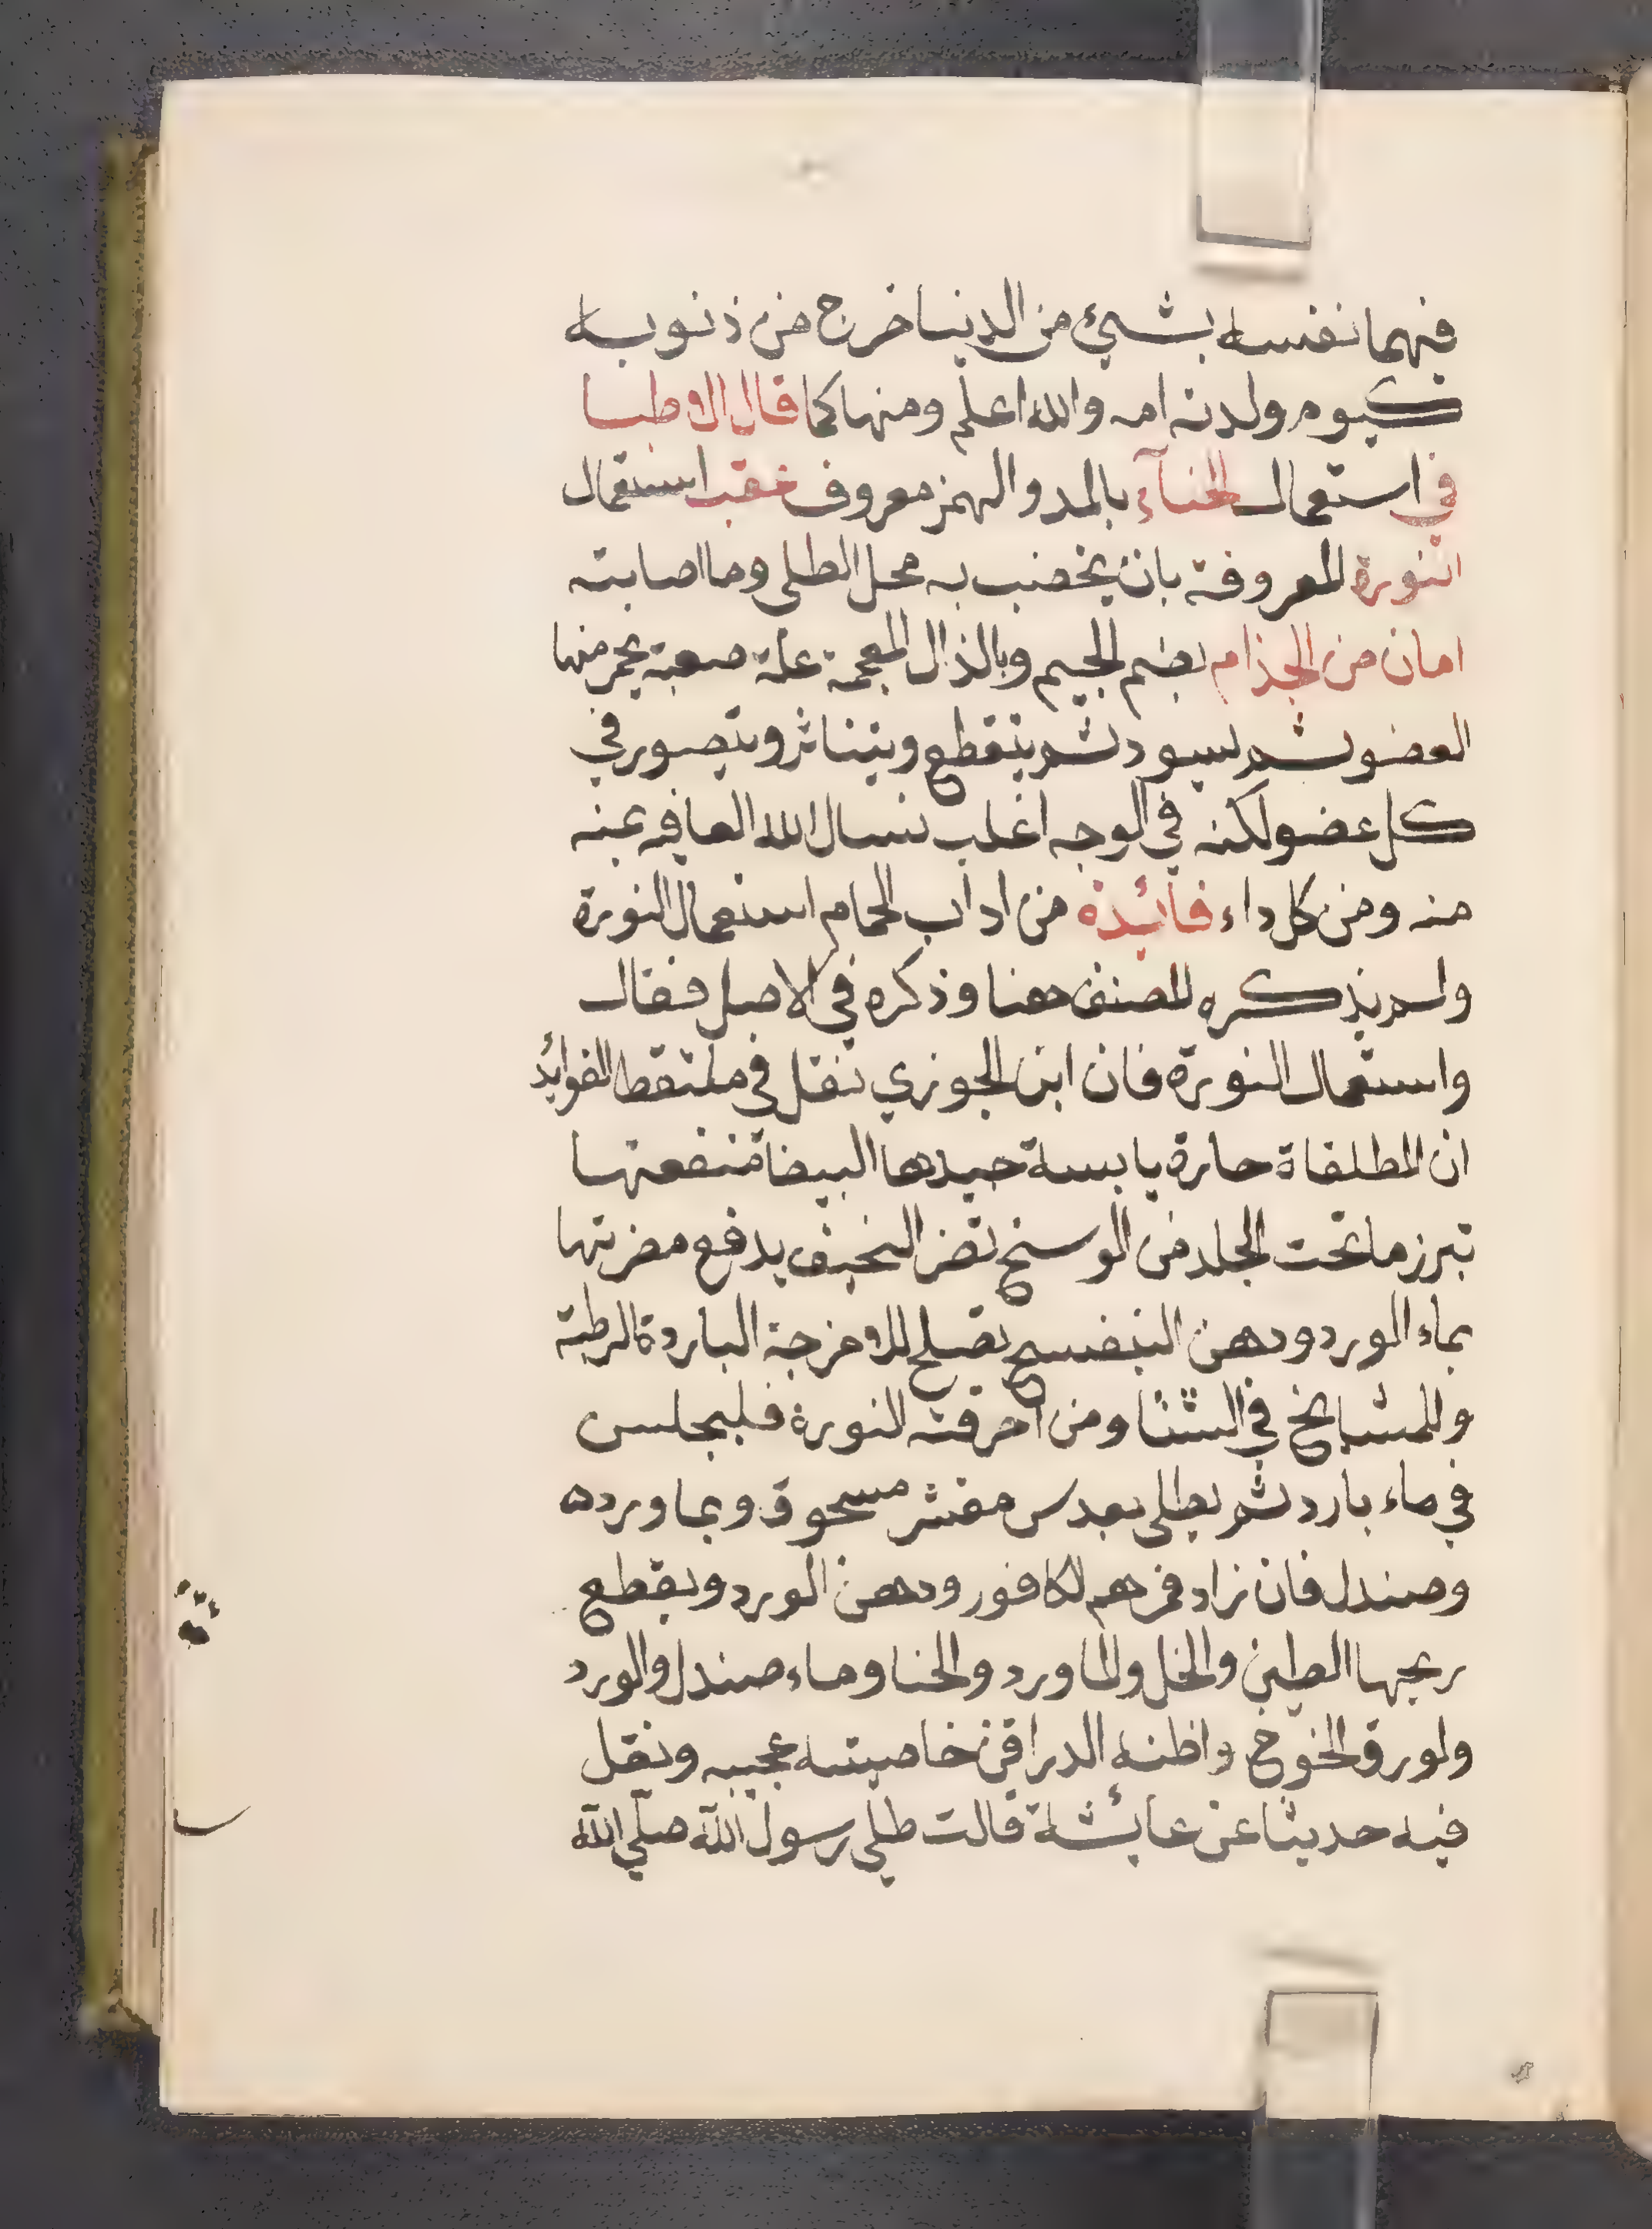 فيهما نفسه بشيئ من الدنيا خرج من ذنوبه
كيوم ولدته امه والله اعلم ومنها كما قال الاوطبا
في استعمال الحنآء بالمد والهمز معروف عقب استعمال
النورة المعروفة بان يخضب به محل الطلى وما اصابته
امان من الجذام بضم الجيم وبالذال المعجمة علة صعبة يحمر منها
العضو ثم يسود ثم يتقطع ويتناثر ويتصور في
كل عضو لكنه في الوجه اغلب نسال الله العافيه بمنه
منه ومن كل داء فائدة من اداب الحمام استعمال النورة
ولم يذكره المصنف هنا وذكره في الاصل فقال
واستعمال النورة فان ابن الجوزي نقل في ملتقط الفوائد
ان المطلقاة حارة يابسة جيدها البيضا منفعتها
تبرز ما تحت الجلد من الوسخ تضر النحيف يدفع مضرتها
بماء الورد ودهن البنفسج تصلح للامزجة الباردة الرطبة
وللمشايخ في الشتا ومن احرقته النورة فليجلس
في ماء بارد ثم يطلى بعدس مقشر مسحوق وبماورده
وصندل فان زاد فمرهم الكافور ودهن الورد ويقطع
ريحها الطين والخل والماورد والحنا وماء صندل والورد
ولورق الخوخ واظنه الدراقن خاصيته عجيبه ونقل
فيه حديثا عن عائشة قالت طلى رسول الله صلي الله